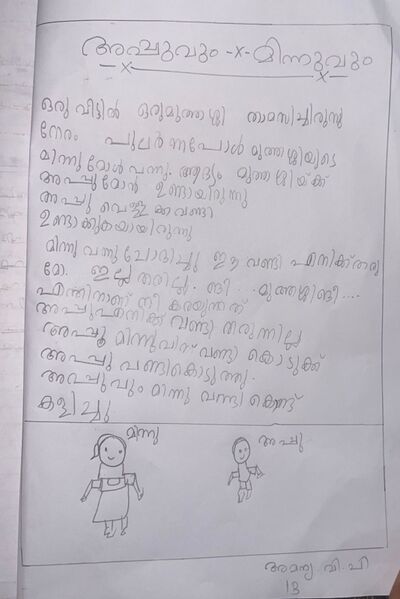 അപ്പുവും -x- മിന്നുവും
ഒരു വീട്ടിൽ ഒരുമുത്തശ്ശി താമസിച്ചിരുന്നു
നേരം പുലർന്നപോൾ മുത്തശ്ശിയുടെ
മിന്നുമോൾ വന്നു. ആദ്യം മുത്തശ്ശിയ്ക്ക്
അപ്പുമോൻ ഉണ്ടായിരുന്നു
അപ്പു വെള്ളക്ക വണ്ടി
ഉണ്ടാക്കുകയായിരുന്നു
മിന്നു വന്നു ചോദിച്ചു ഈ വണ്ടി എനിക്ക് തരു
മോ. ഇല്ല തരില്ല. ങീ . . . മുത്തശ്ശിങീ ....
എന്തിനാണ് നീ കരയുന്നത്
അപ്പുഎനിക്ക് വണ്ടി തരുന്നില്ല
അപ്പൂ മിന്നുവിന് വണ്ടി കൊടുക്ക്
അപ്പു വണ്ടികൊടുത്തു.
അപ്പുവും മിന്നു വണ്ടി കൊണ്ട്
കളിച്ചു
മിന്നു അപ്പു
അമന്യ വി. പി
13